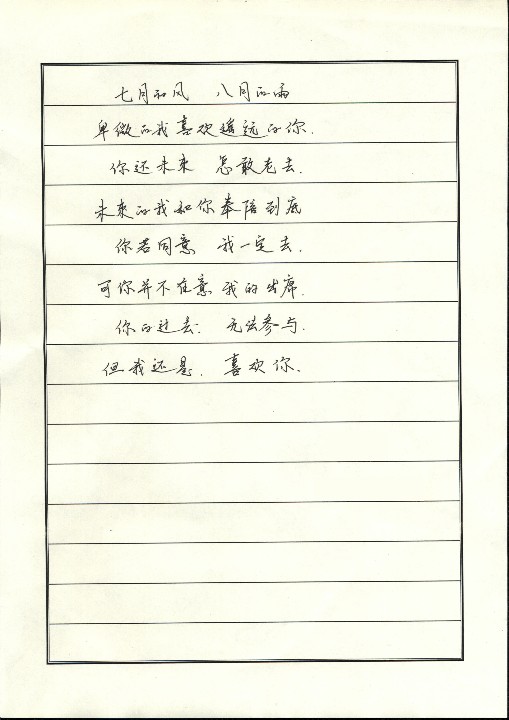 七月的风 八月的雨
卑微的我喜欢遥远的你.
你还未来 怎敢老去.
未来的我和你奉陪到底
你若同意 我一定去.
可你并不在意 我的出席.
你的过去. 无法参与.
但我还是. 喜欢你.